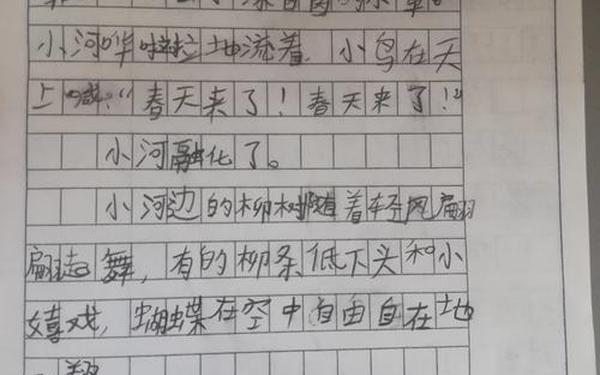 小河哗啦啦地流着，小鸟在天
上喊：“春天来了！春天来了！”
小河融化了。
小河边的柳树随着轻风翩
翩起舞，有的柳条低下头和小
嬉戏，蝴蝶在空中自由自在地
翔